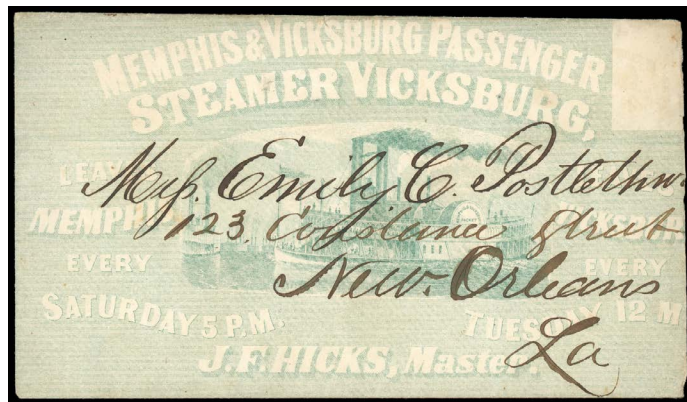 MEMPHIS & VICKSBURG PASSENGER
STEAMER VICKSBURG,
LEAVES
MEMPHIS
EVERY
SATURDAY 5 P.M.
VICKSBURG
EVERY
TUESDAY 12 M
J. F. HICKS, Master.
Miss Emily C. Postlethw
123 Constance street
New. Orleans
La